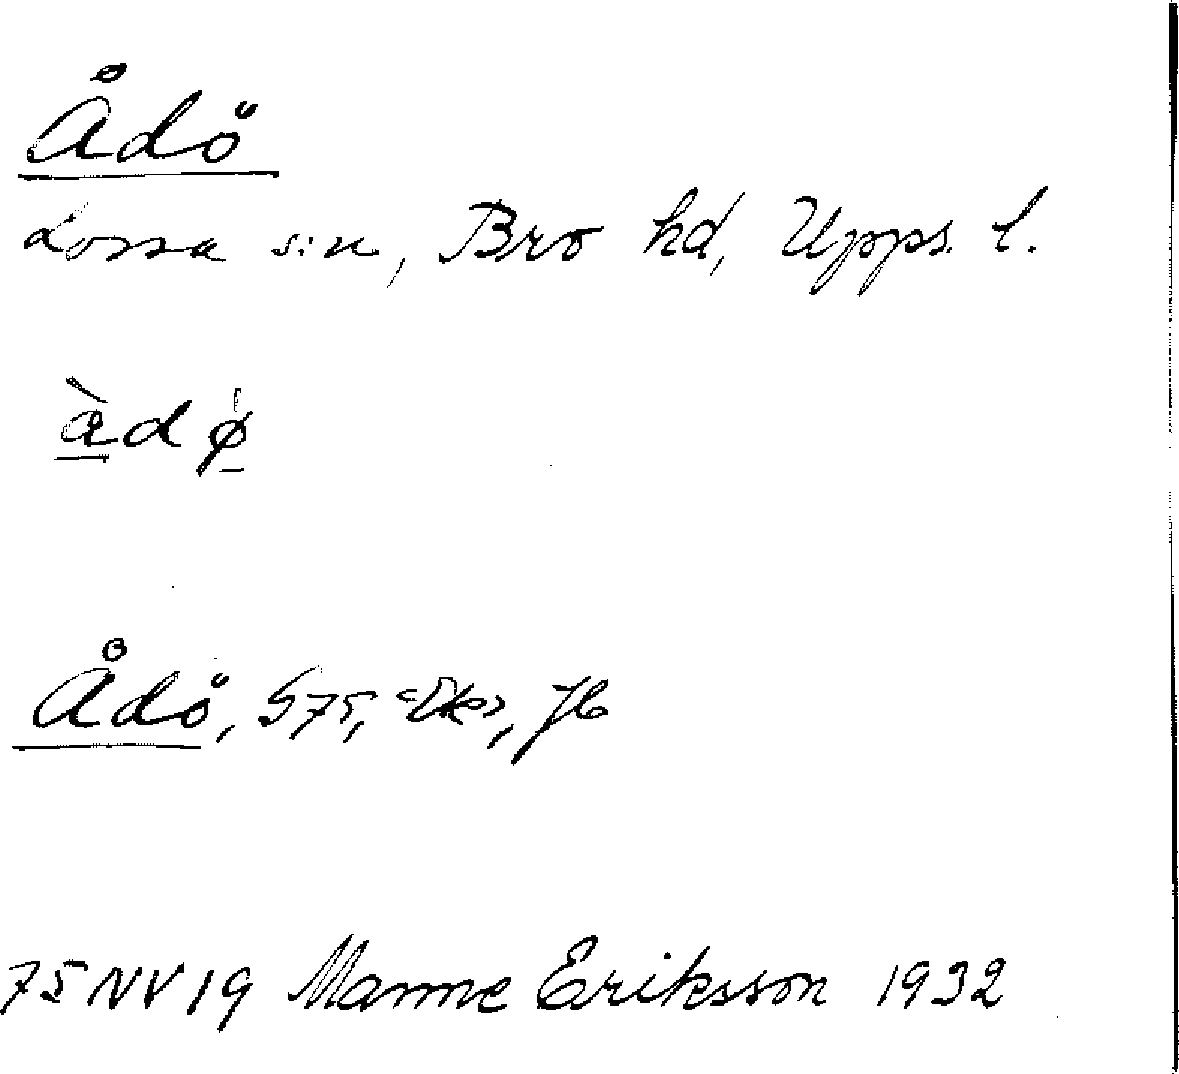 Ådö
Lossa s:n, Bro hd, Upps. l.
àdø
Ådö, S75, Ek, Jb
75 NV 19 Manne Eriksson 1932